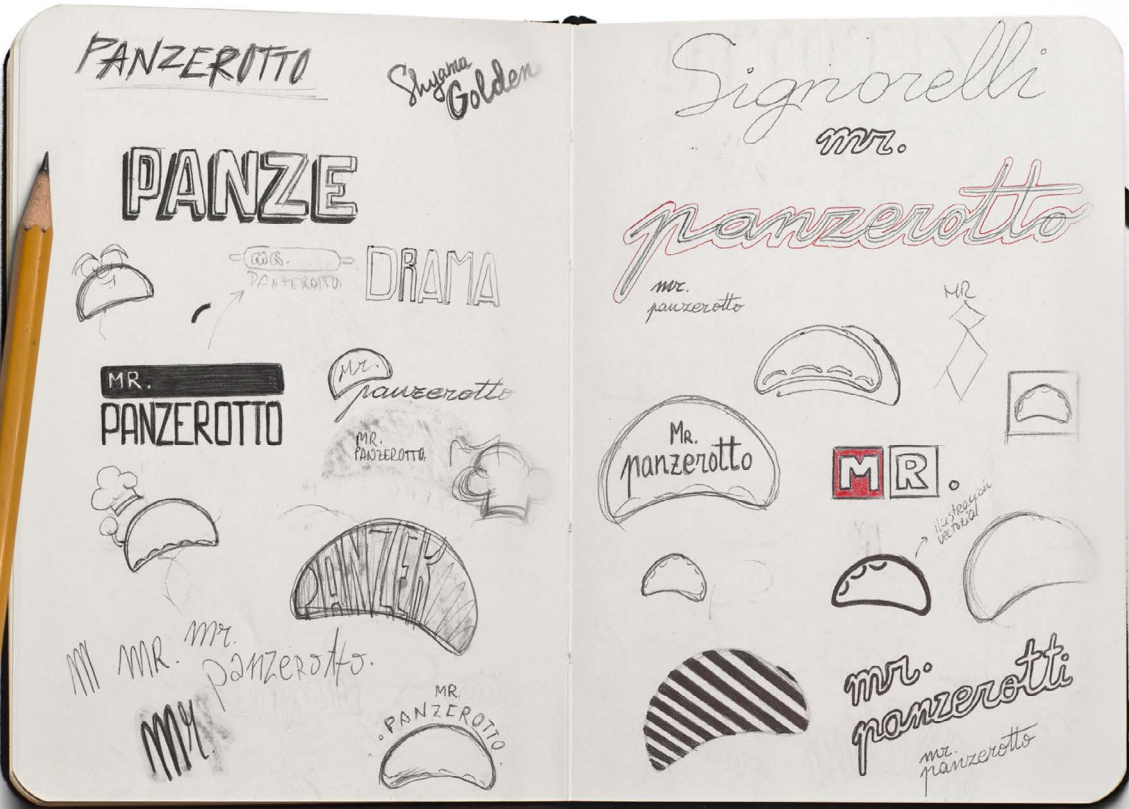 PANZEROTTO
Shyama
Golden
PANZE
MR.
PANZEROTTO
DRAMA
MR.
PANZEROTTO
Mr.
panzerotto
MR.
PANZEROTTO
PANZER
M MR. mr.
panzerotto.
mr
MR.
PANZEROTTO
Signorelli
mr.
panzerotto
mr.
panzerotto
MR
Mr.
panzerotto
MR.
ilustracion
vectorial
mr.
panzerotti
mr.
panzerotto